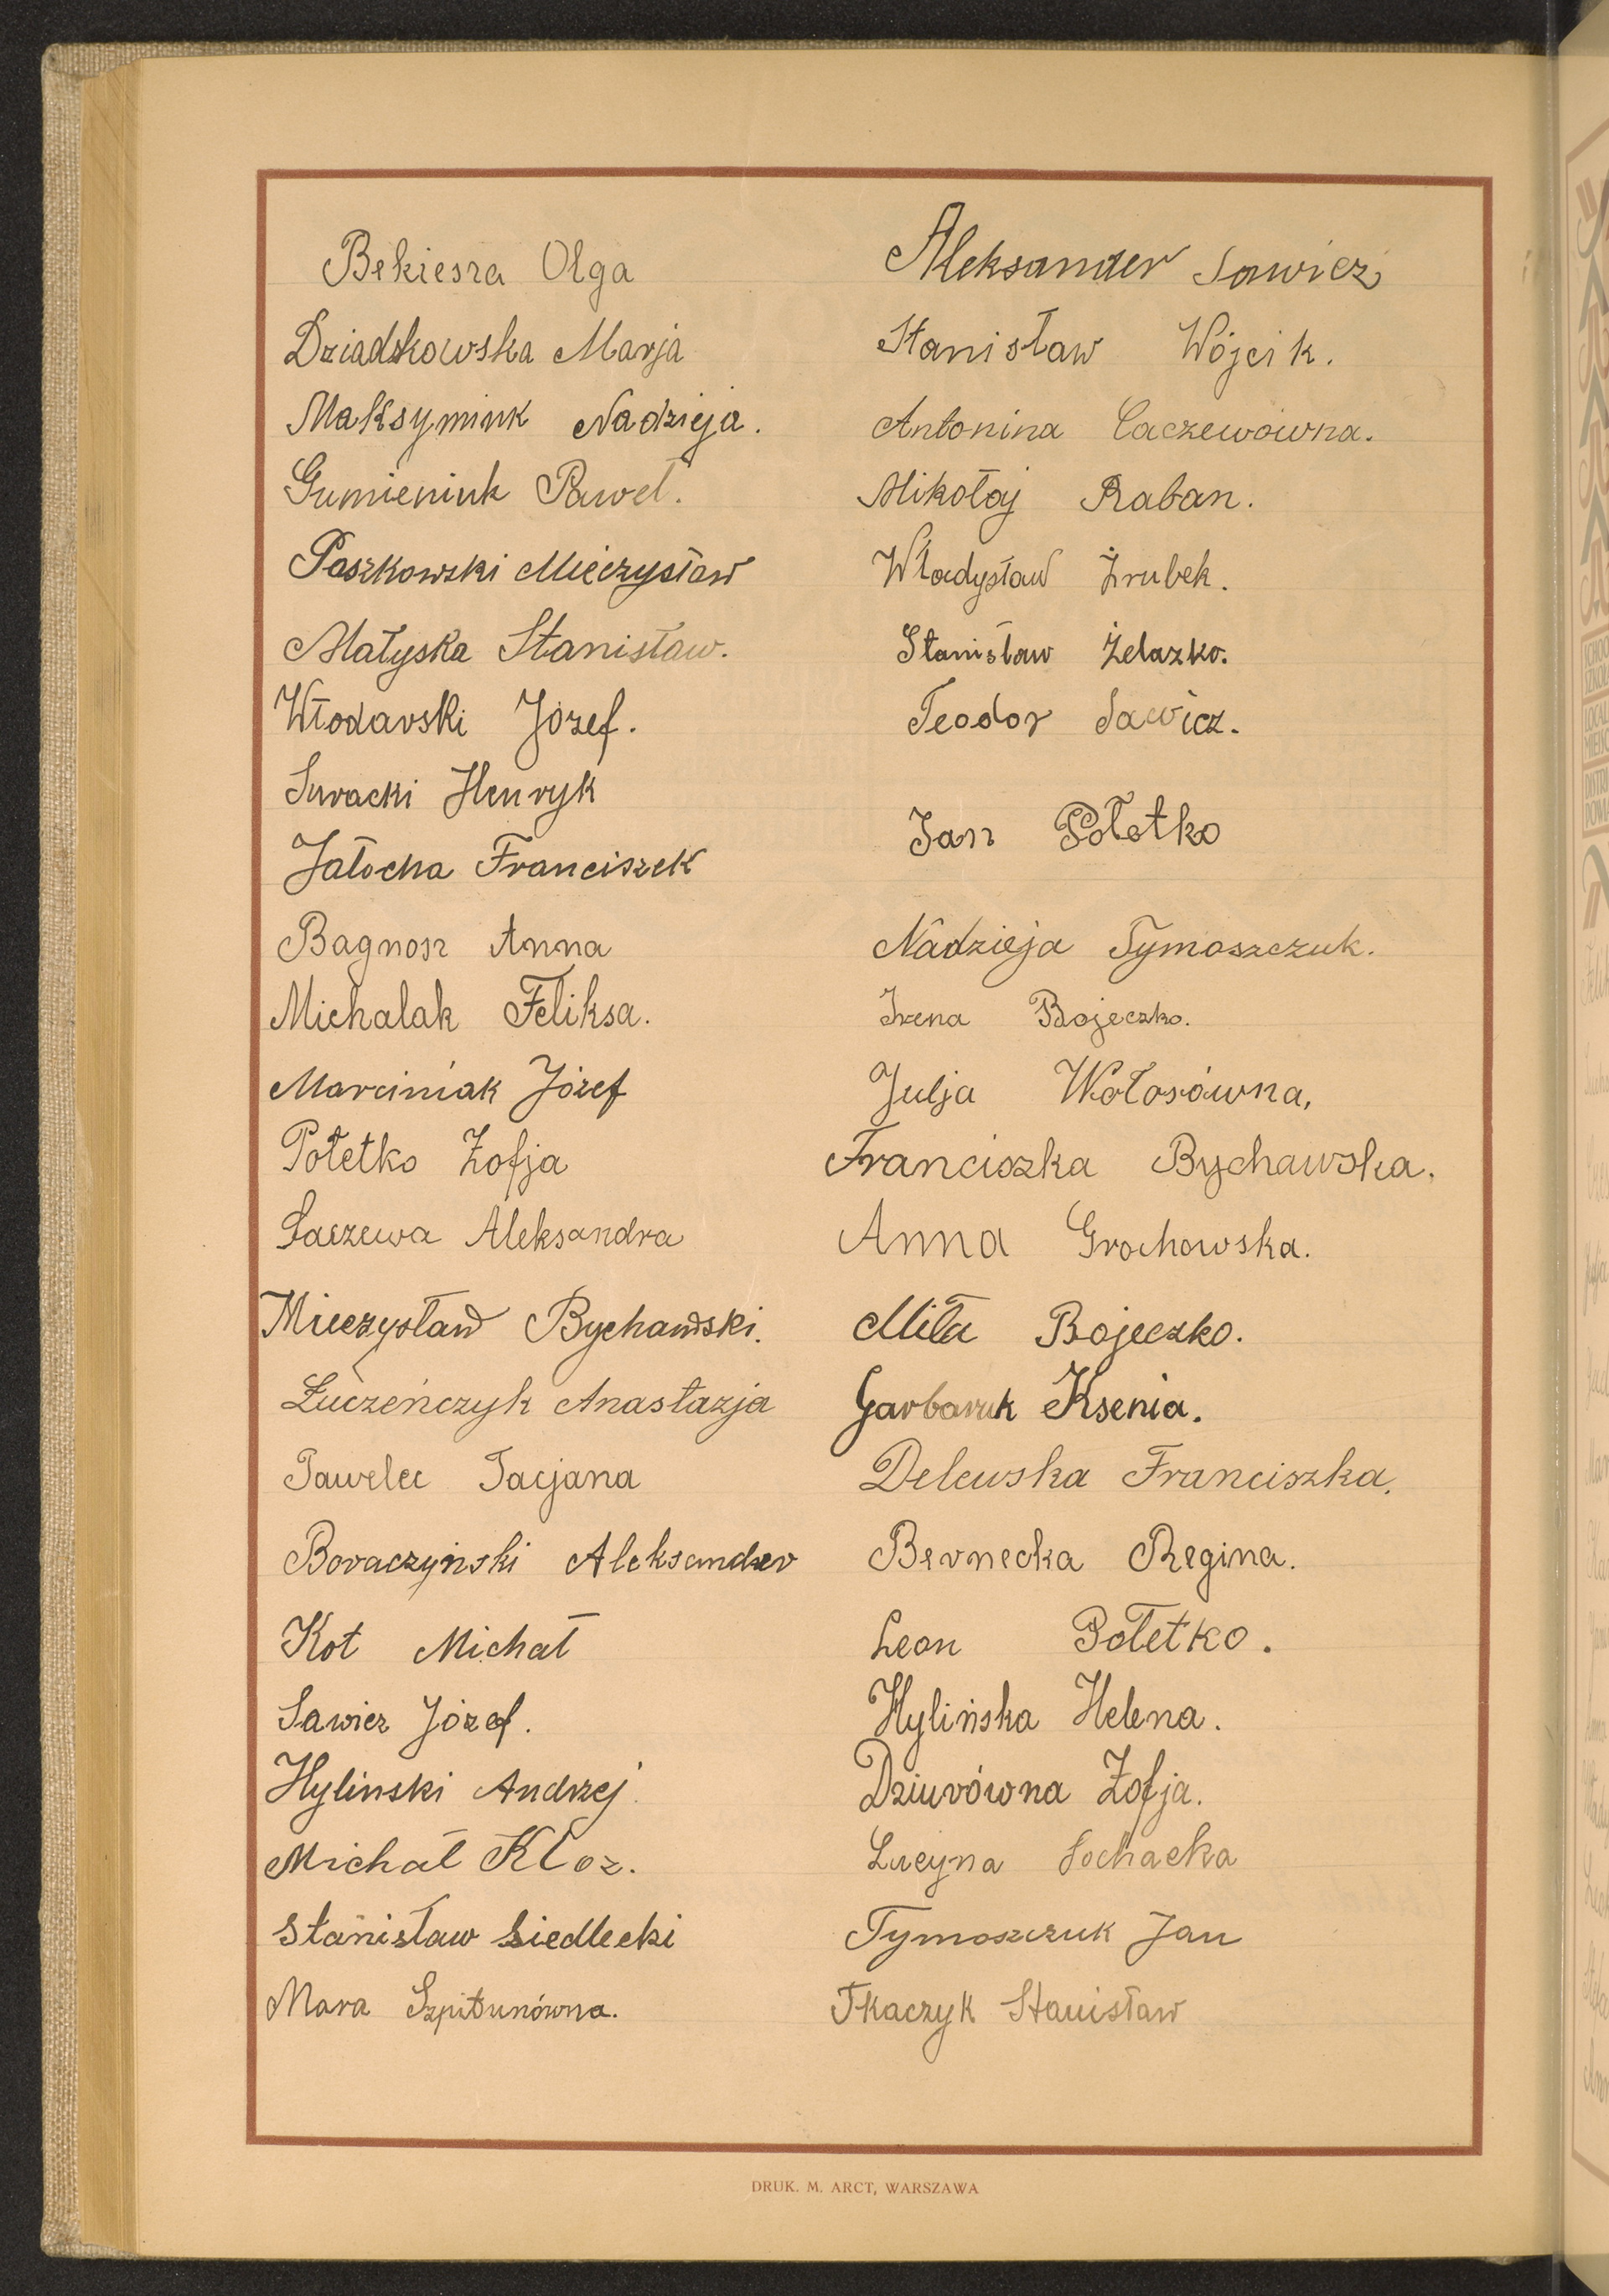 Bekiesza Olga
Dziadkowska Marja
Maksymiuk Nadzieja.
Gumieniuk Paweł.
Paszkowski Mieczysław
Małyska Stanisław.
Włodarski Józef.
Suracki Henryk
Jałocha Franciszek
Bagnosz Anna
Michalak Feliksa.
Marciniak Józef
Połetko Zofja
Łaczewa Aleksandra
Mieczysław Bychawski.
Łuczeńczyk Anastazja
Pawelec Tacjana
Boraczyński Aleksander
Kot Michał
Sawicz Józef.
Hylinski Andrzej.
Michał Kloz.
Stanisław Siedlecki
Mara Szpitunówna.
Aleksander Sawicz
Stanisław Wójcik.
Antonina Łaczewówna.
Mikołaj Raban.
Władysław Źrubek.
Stanisław Żelazko.
Teodor Sawicz.
Jan Połetko
Nadzieja Tymoszczuk.
Irena Bojeczko.
Julja Wołosówna,
Franciszka Bychawska.
Anna Grochowska.
Miła Bojeczko.
Garbaruk Ksenia.
Delewska Franciszka.
Bernecka Regina.
Leon Połetko.
Hylińska Helena.
Dziurówna Zofja.
Lucyna Sochacka
Tymoszczuk Jan
Tkaczyk Stanisław
DRUK. M. ARCT, WARSZAWA